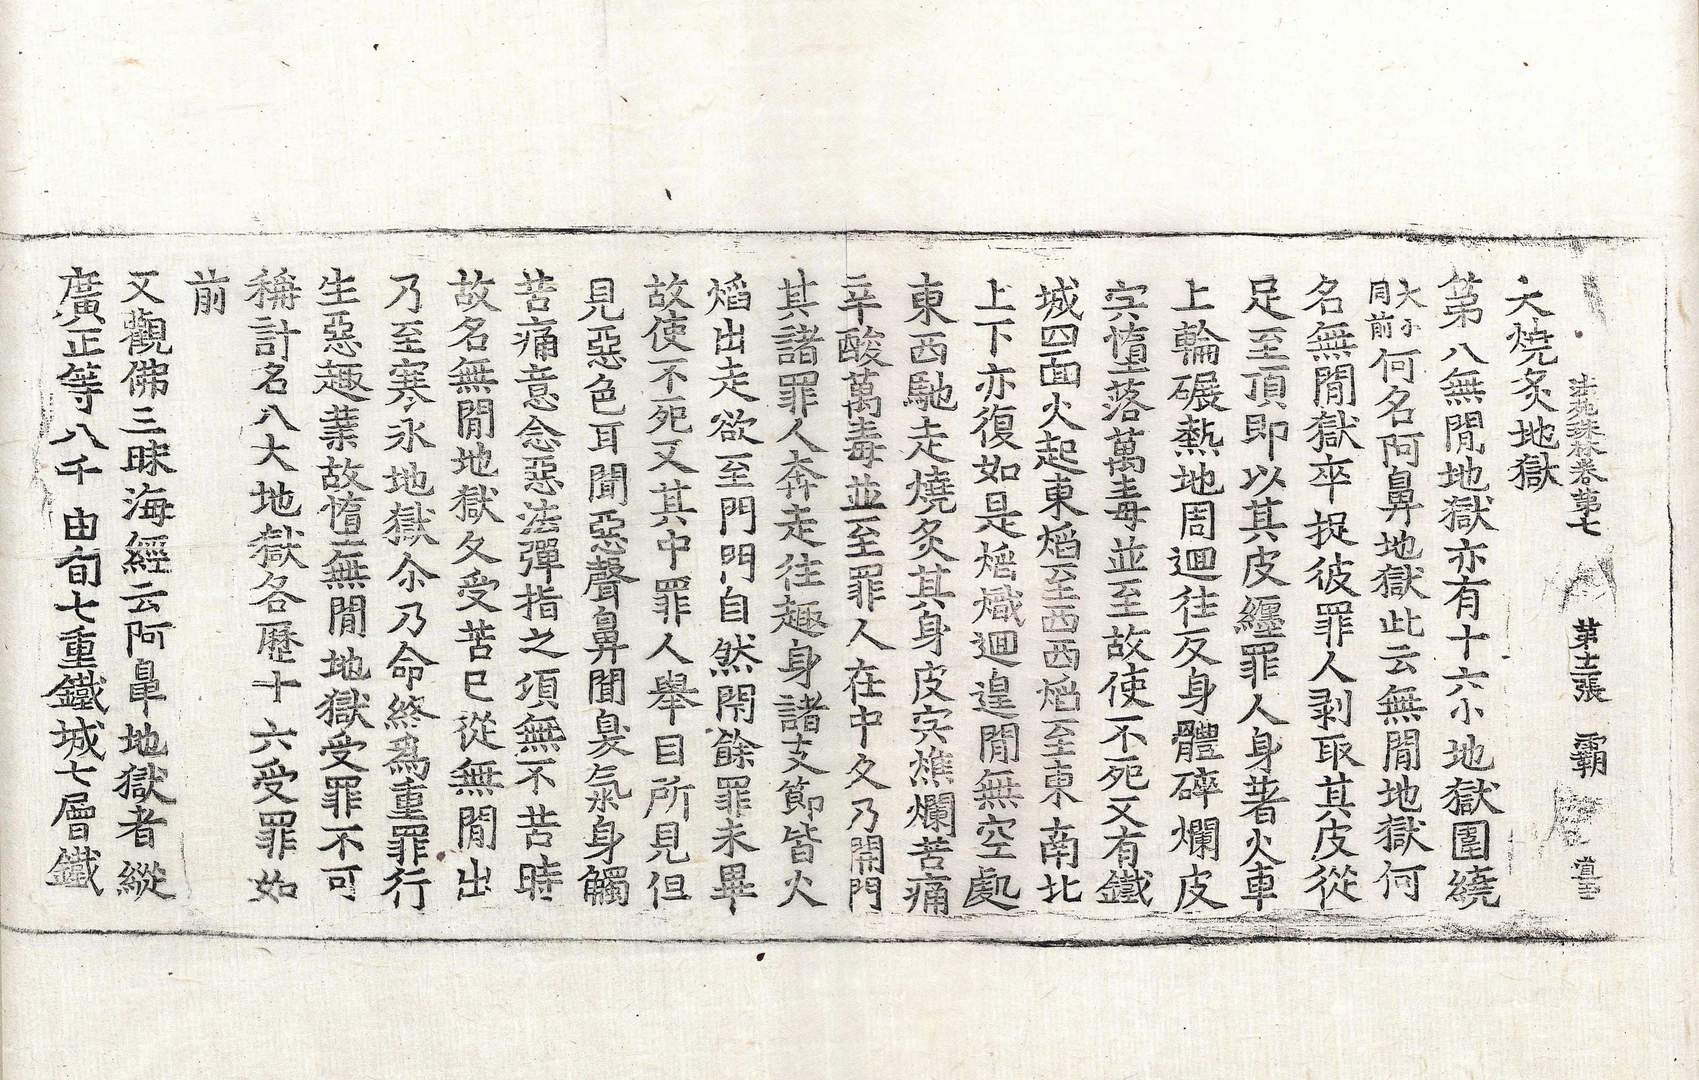 法苑珠林卷第七　第十二張　霸
大燒炙地獄
第八無間地獄亦有十六小地獄圍繞
大小同前何名阿鼻地獄此云無間地獄何
名無間獄卒捉彼罪人剥取其皮從
足至頂即以其皮纏罪人身著火車
上輪碾熱地周迴往反身體碎爛皮
宍墮落萬毒並至故使不死又有鐵
城四面火起東焰至西西焰至東南北
上下亦復如是焰熾迴遑間無空處
東西馳走燒炙其身皮宍燋爛苦痛
辛酸萬毒並至罪人在中久乃開門
其諸罪人奔走往趣身諸支節皆火
焰出走欲至門門自然閇餘罪未畢
故使不死又其中罪人舉目所見但
見惡色耳聞惡聲鼻聞臭氣身觸
苦痛意念惡法彈指之須無不苦時
故名無間地獄久受苦已從無間出
乃至寒氷地獄尒乃命終爲重罪行
生惡趣業故墮無間地獄受罪不可
稱計名八大地獄各歷十六受罪如
前
又觀佛三昧海經云阿鼻地獄者縱
廣正等八千由旬七重鐵城七層鐵